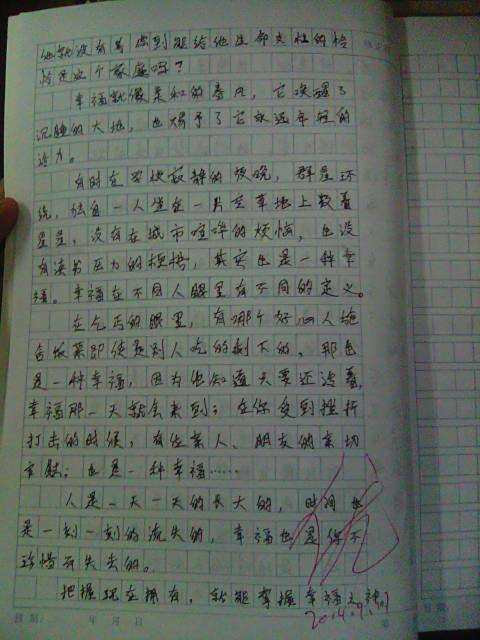 他就没有意识到能给他这部支柱的恰
恰是这个家庭吗？
幸福就像柔和的春风，它唤醒了
沉睡的大地，也赐予了它永远年轻的
活力。
有时在安快寂静的夜晚，群星环
绕，独自一人坐在一片空草地上数着
星星，没有在城市喧哗的烦恼，也没
有读书压力的梗梏，其实也是一种幸
福。幸福在不同人眼里有不同的定义。
在乞丐的眼里，有哪个好心人施
舍饭菜即使是别人吃的剩下的，那也
是一种幸福，因为他知道天要还活着，
幸福那一天就会来到；在你受到挫折
打击的时候，有位亲人、朋友的亲切
安慰；也是一种幸福……
人是一天一天的长大的，时间也
是一刻一刻的流失的，幸福也是你不
珍惜而失去的。
把握现在拥有，就能掌握幸福之神！
年 月 日